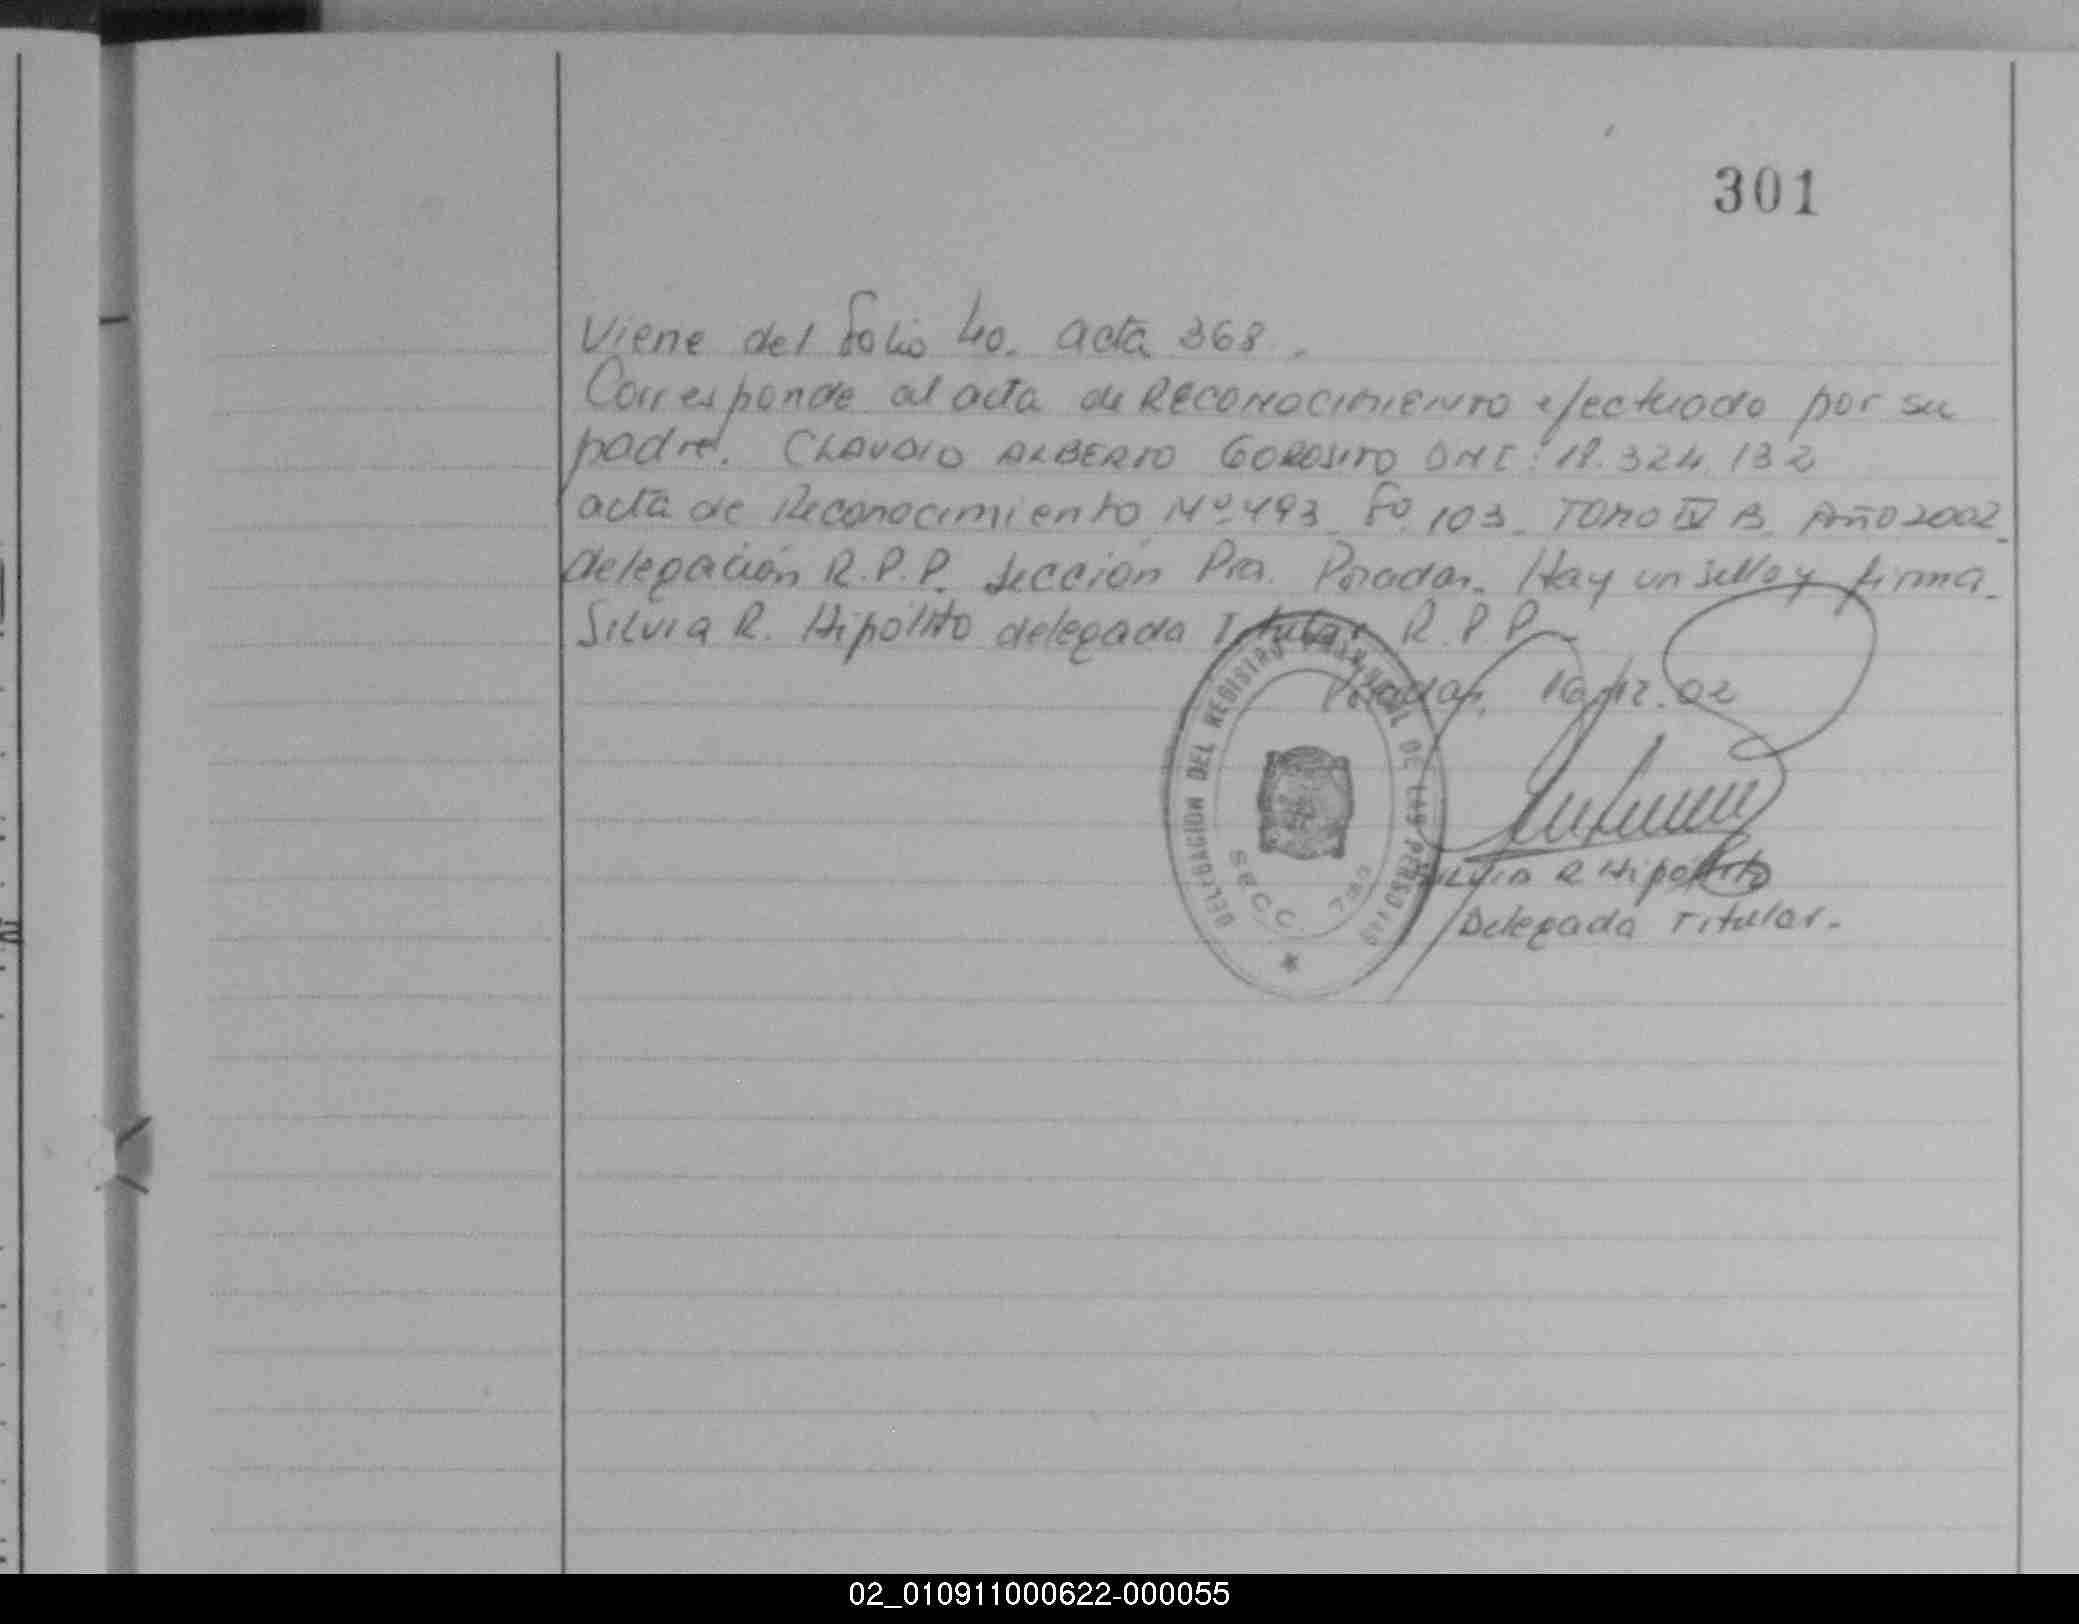 301
Viene del folio 40. acta 368.
Corresponde al acta de RECONOCIMIENTO efectuado por su
padre. CLAUDIO ALBERTO GOROSITO DNI: 18.324.132
acta de Reconocimiento Nº 493 Fo. 103 TOMO IV B. AÑO 2002
delegación R.P.P. Sección Pra. Posadas. Hay un sello y firma.
Silvia R. Hipólito delegada Titular R.P.P.
Posadas, 12.02
DELEGACION DEL REGISTRO PROVINCIAL DE LAS PERSONAS
SECC.
Silvia R Hipólito
Delegada Titular.
02_010911000622-000055